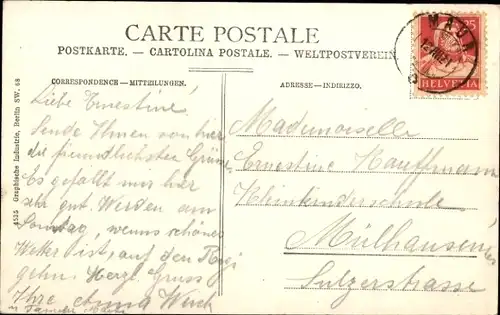 CARTE POSTALE
POSTKARTE. – CARTOLINA POSTALE. – WELTPOSTVEREIN
CORRESPONDENCE – MITTEILUNGEN.
ADRESSE – INDIRIZZO.
25
HELVETIA
4535 Graphische Industrie, Berlin SW. 68
Liebe Ernestine!
Sende Ihnen von hier
die freundlichsten Grüsse
Es gefällt mir hier
sehr gut. Werden am
Sonntag, wenns schönes
Wetter ist, auf den Rigi
gehn. Herzl. Gruss
Ihre
Mademoiselle
Ernestine Kauffmann
Kleinkinderschule
Mülhausen
Sulzerstrasse